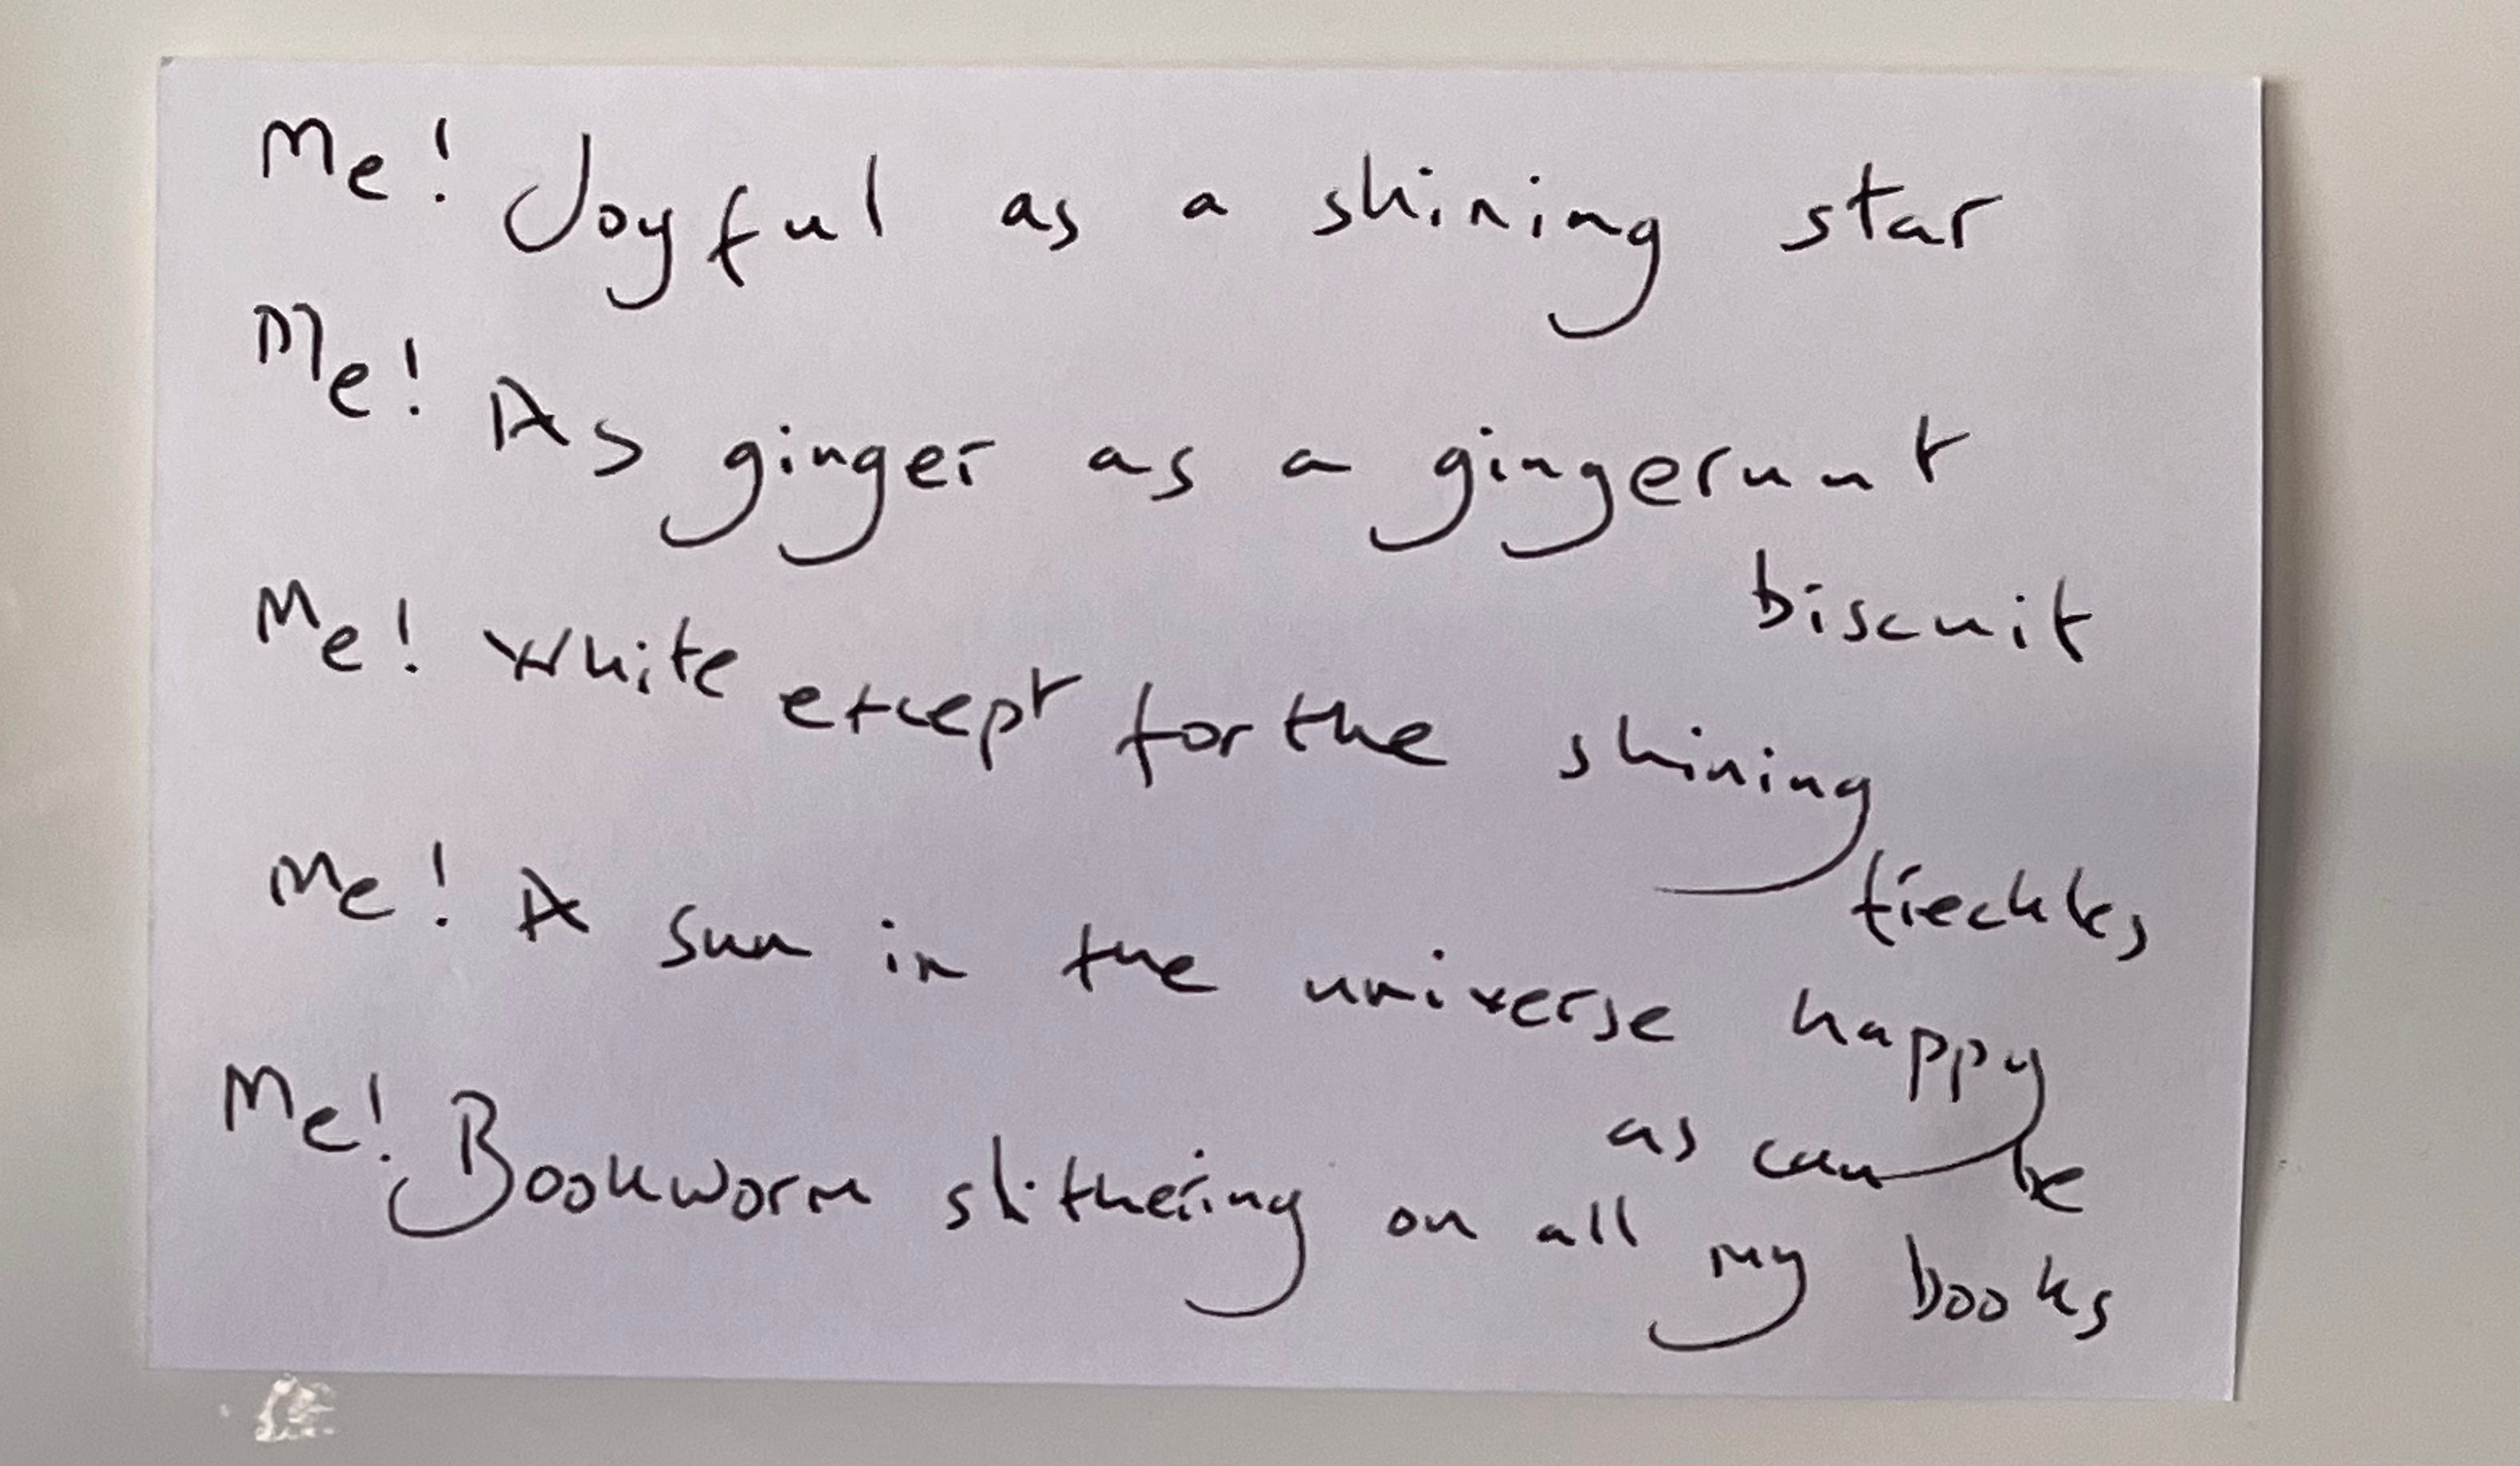 Me! Joyful as a shining star
Me! As ginger as a gingernut
biscuit
Me! White except for the shining
freckles
Me! A sun in the universe happy
as can be
Me! Bookworm slithering on all my books